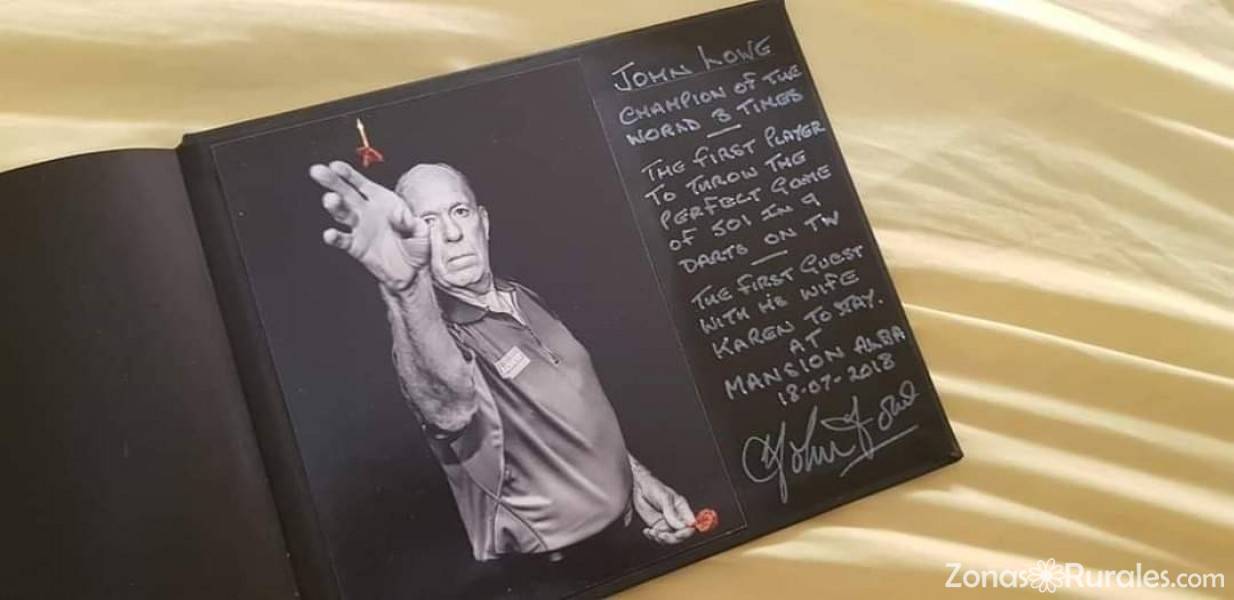 JOHN LOWE
CHAMPION OF THE
WORLD 3 TIMES
THE FIRST PLAYER
TO THROW THE
PERFECT GAME
OF 501 IN 9
DARTS ON TV
THE FIRST GUEST
WITH HIS WIFE
KAREN TO STAY.
AT
MANSION ALBA
18-07-2018
John Lowe
ZonasRurales.com